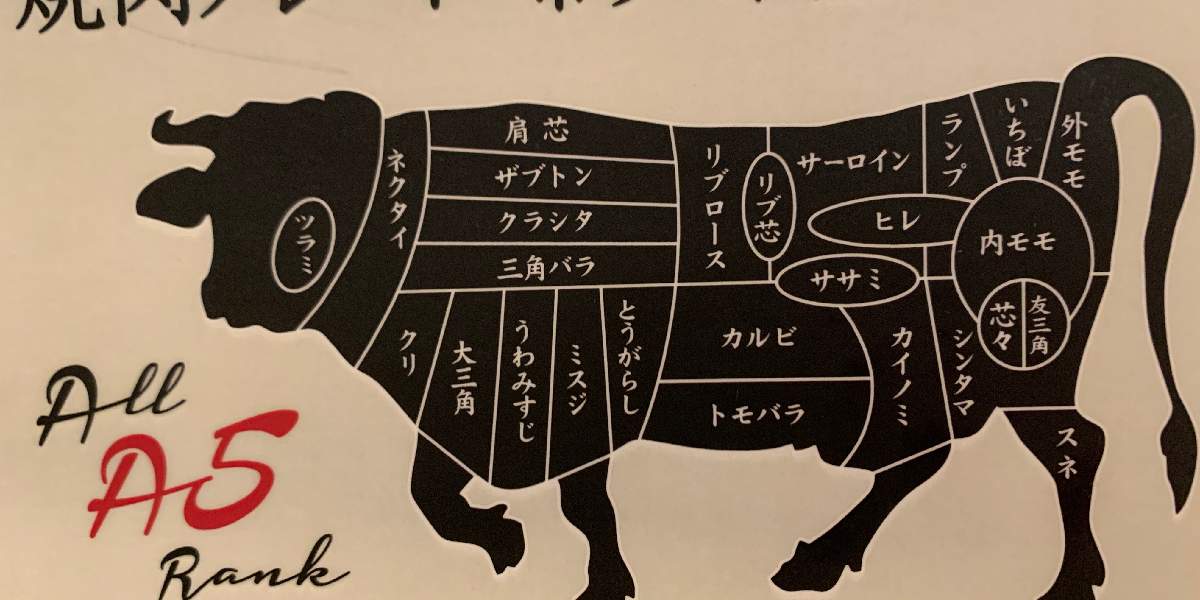 焼肉
肩芯
ザブトン
クラシタ
三角バラ
ネクタイ
ツラミ
リブロース
リブ芯
サーロイン
ランプ
いちぼ
外モモ
ヒレ
内モモ
ササミ
芯々
友三角
クリ
大三角
うわみすじ
ミスジ
とうがらし
カルビ
トモバラ
カイノミ
シンタマ
スネ
All
A5
Rank